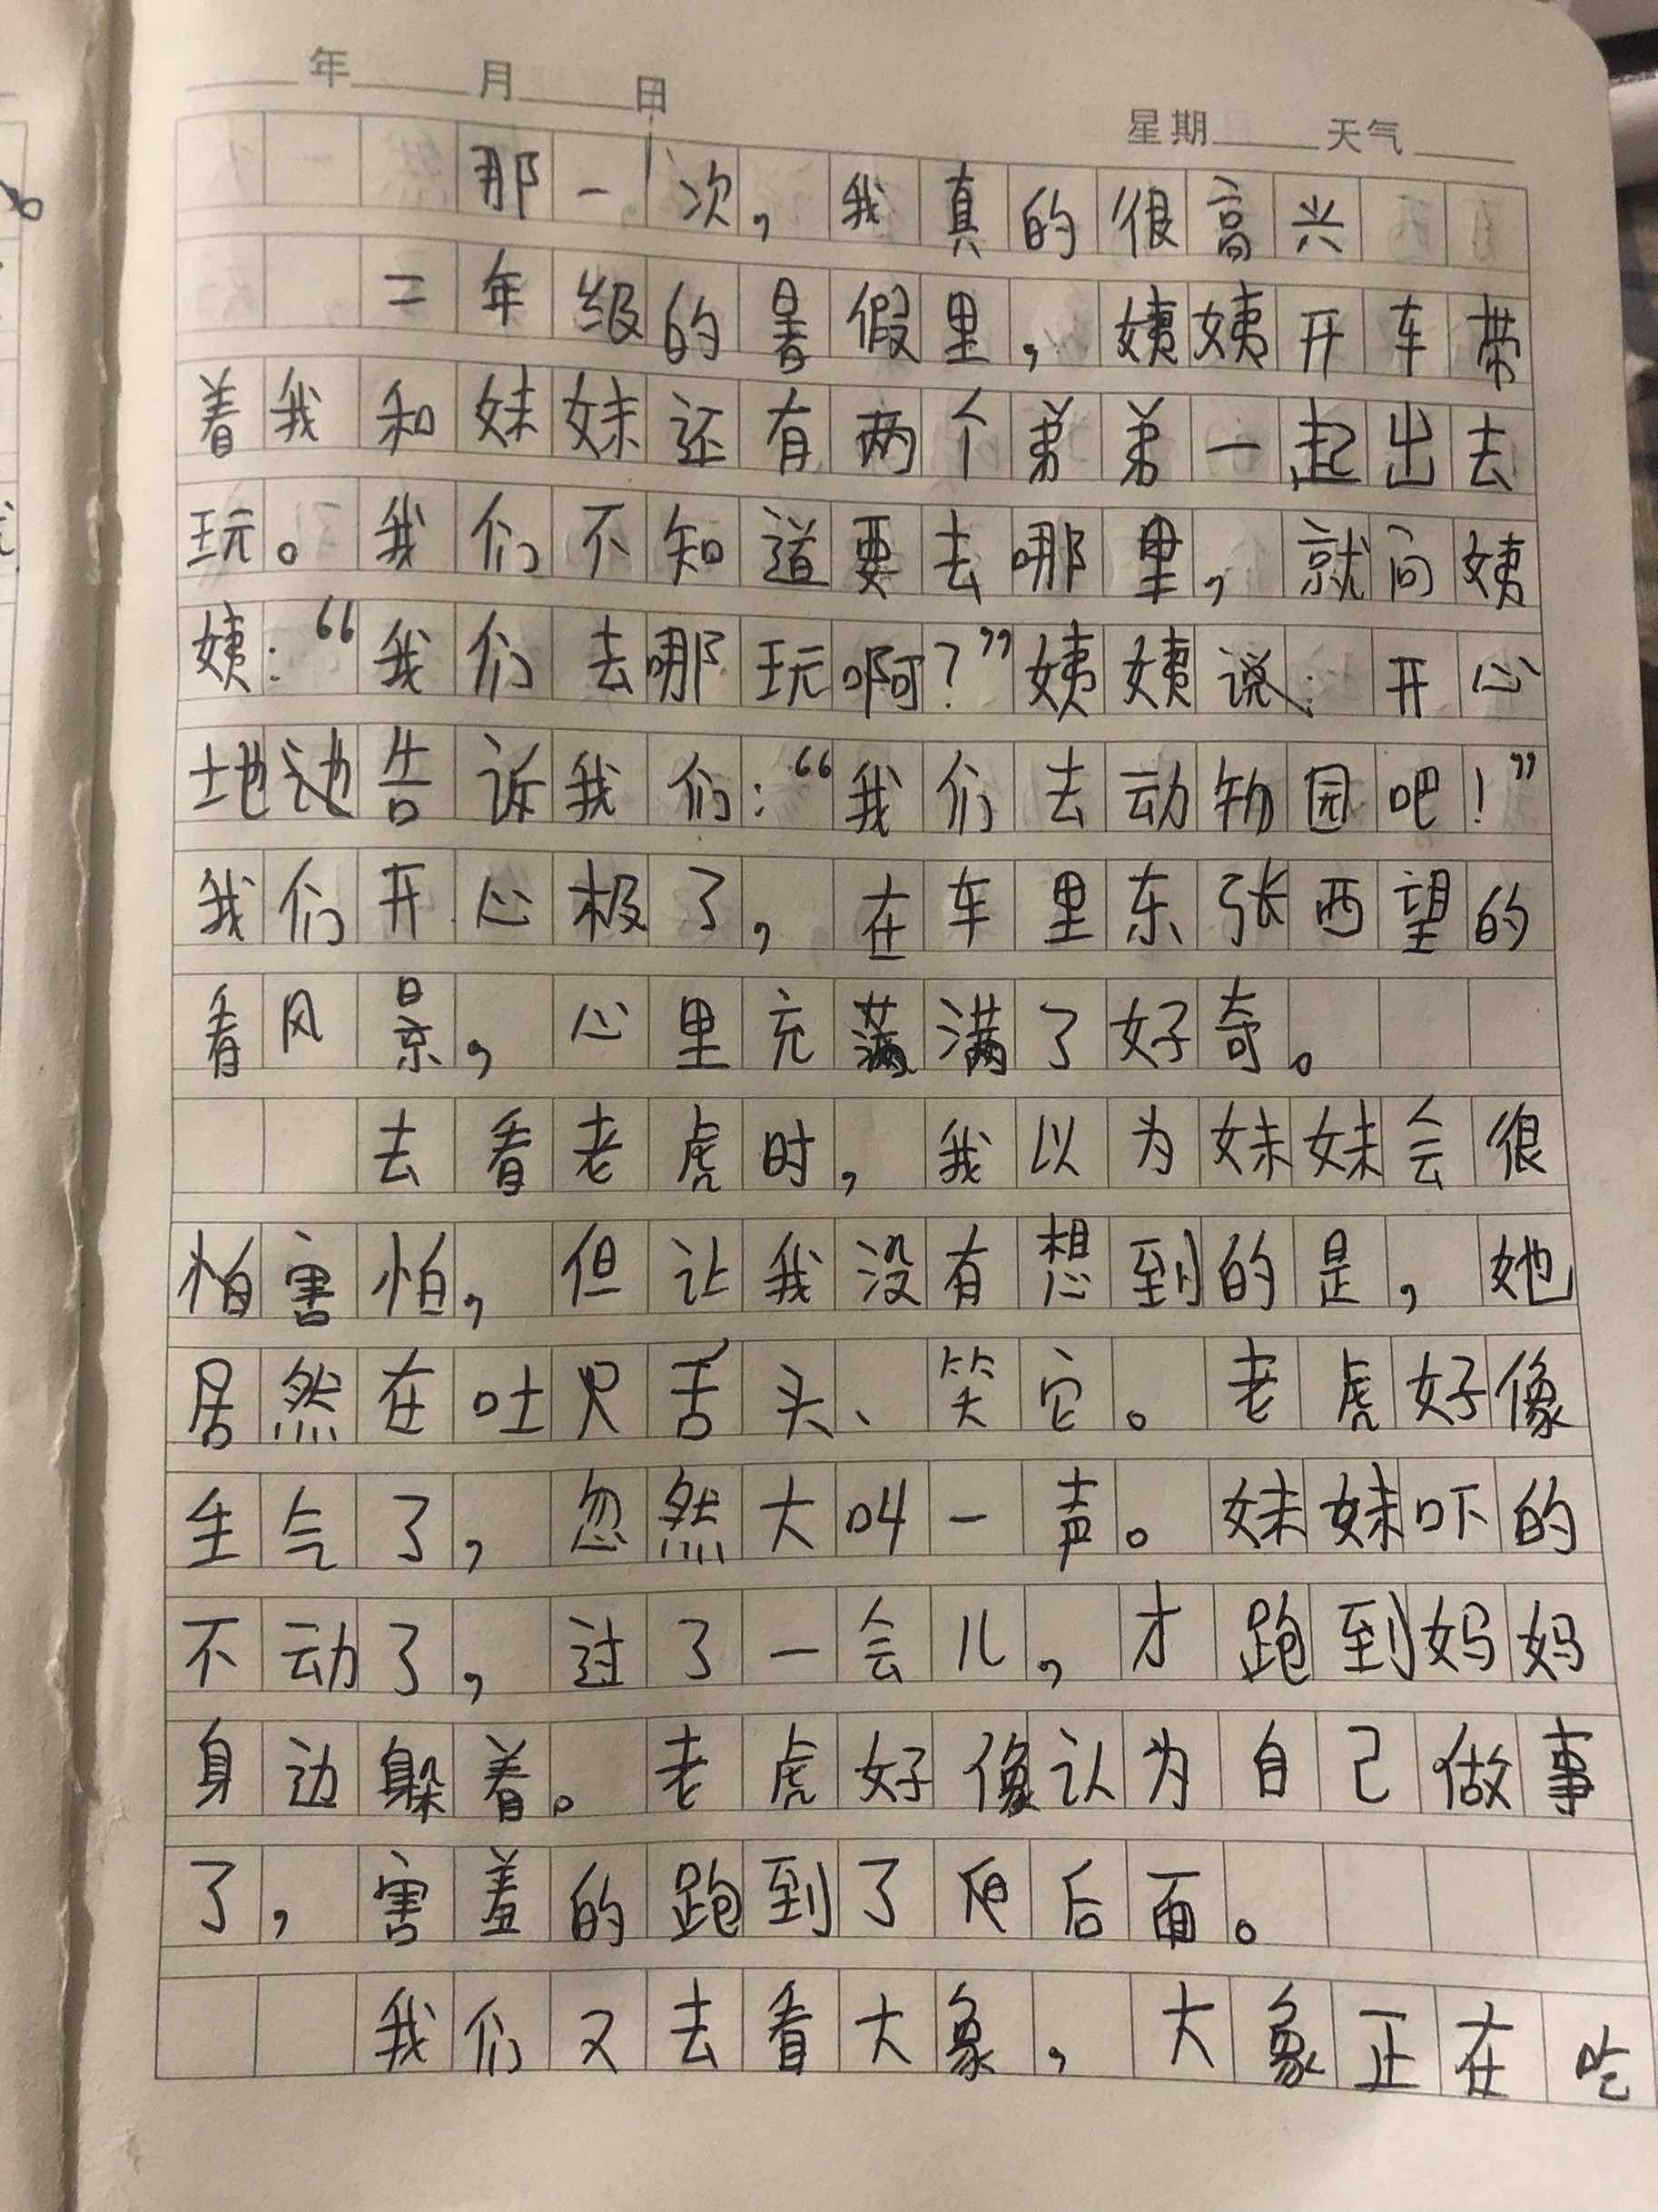 年 月 日
星期 天气
那一次，我真的很高兴
二年级的暑假里，姨姨开车带
着我和妹妹还有两个弟弟一起出去
玩。我们不知道要去哪里，就问姨
姨：“我们去哪玩啊？”姨姨说：开心
地地告诉我们：“我们去动物园吧！”
我们开心极了，在车里东张西望的
看风景，心里充满满了好奇。
去看老虎时，我以为妹妹会很
怕害怕，但让我没有想到的是，她
居然在吐只舌头、笑它。老虎好像
生气了，忽然大叫一声。妹妹吓的
不动了，过了一会儿，才跑到妈妈
身边躲着。老虎好像认为自己做事
了，害羞的跑到了后面。
我们又去看大象，大象正在吃